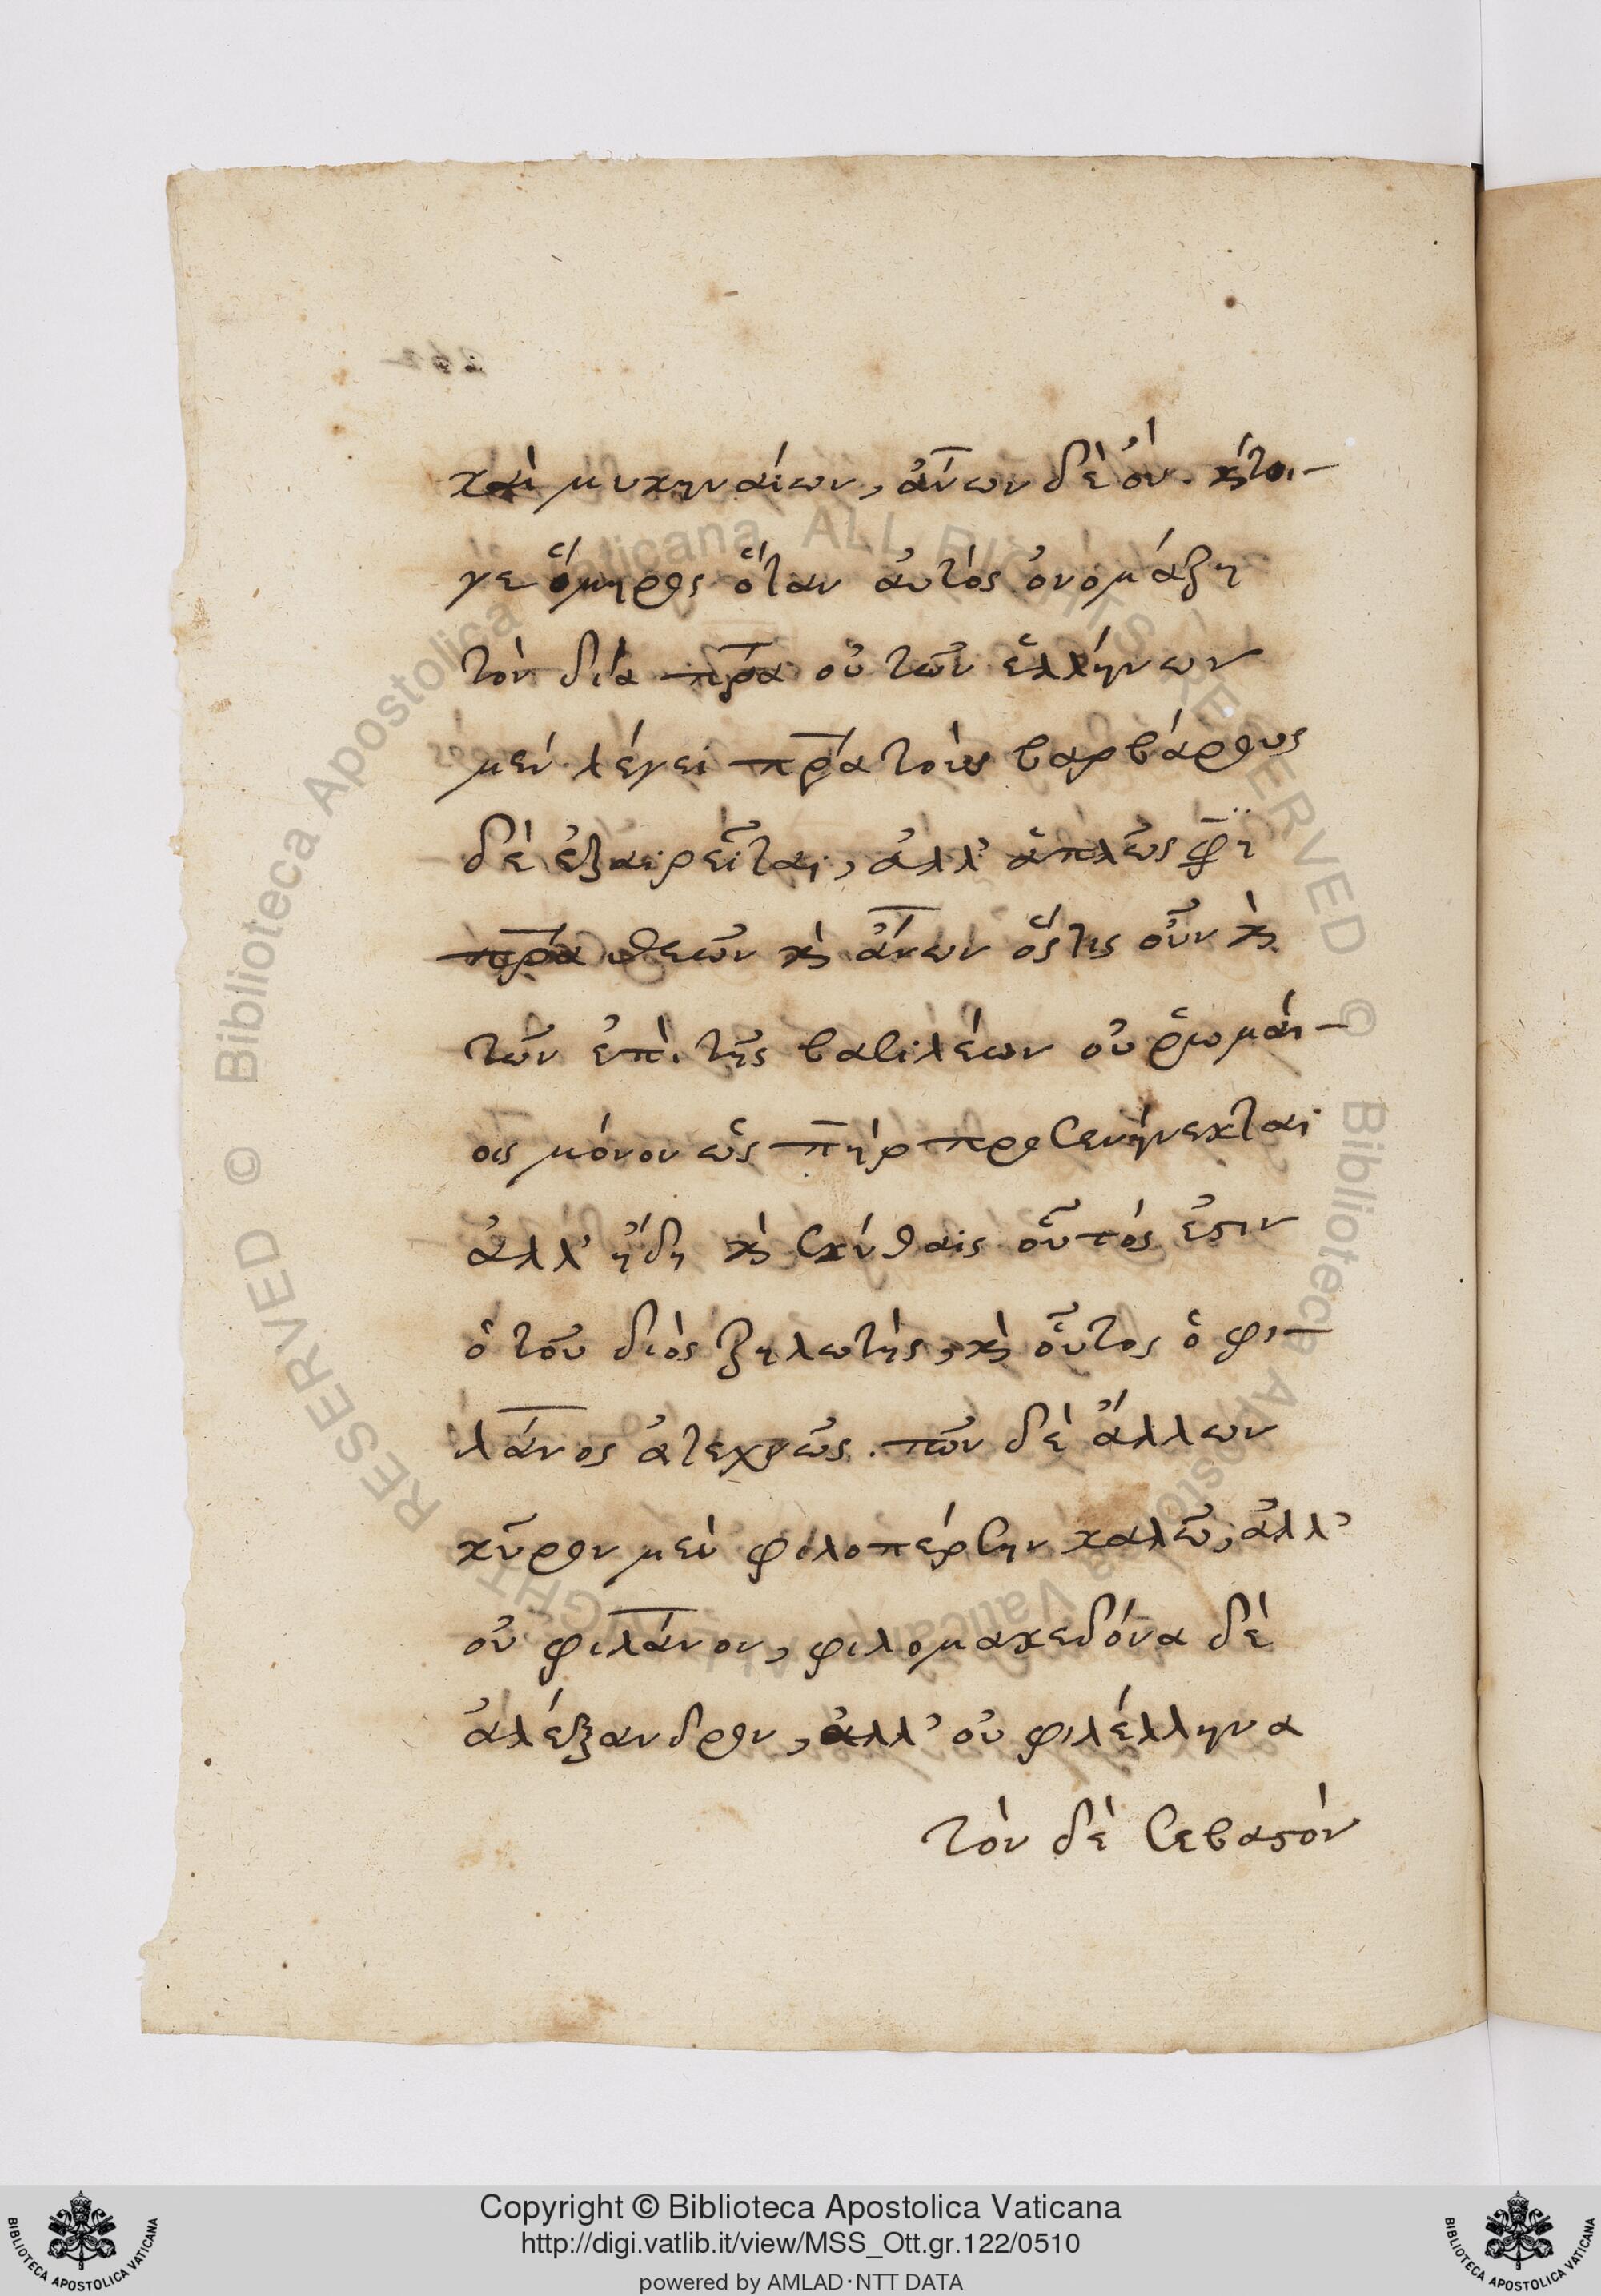 καὶ μυκηναίων, ἀν̅ων δὲ ὀύ. κ́τοι-
γε ὅμηρος ὅταν ἀυτὸς ὀνομάζη
τὸν δία πρ̅α οὐ τῶν ἑλλήνων
μὲν λέγει πρ̅α τοὺς βαρβάρους
δὲ ἐξαιρεῖται, ἀλλ' ἁπλῶς φη̅
πρ̅α θεῶν κ̀ ἀν̅ων ὅςτις οὖν κ̀
τῶν ἐπὶ τῆς βασιλέων οὐ ῥωμαί-
οις μόνον ὡς πη̅ρ προσενήνεκται
ἀλλ' ἤδη κ̀ σκύθαις οὗτός ἐστιν
ὁ τοῦ διὸς ζηλωτὴς, κ̀ οὗτος ὁ φι-
λάν̅ος ἀτεχνῶς. τῶν δὲ ἄλλων
κῦρον μὲν φιλοπέρσην καλῶ, ἀλλ'
οὐ φιλάν̅ον, φιλομακεδόνα δὲ
ἀλέξανδρον, ἀλλ' οὐ φιλέλληνα
τὸν δὲ σεβαστόν
Copyright © Biblioteca Apostolica Vaticana
http://digi.vatlib.it/view/MSS_Ott.gr.122/0510
powered by AMLAD·NTT DATA
BIBLIOTECA APOSTOLICA VATICANA
BIBLIOTECA APOSTOLICA VATICANA
© Biblioteca Apostolica Vaticana ALL RIGHTS RESERVED © Biblioteca Apostolica Vaticana ALL RIGHTS RESERVED